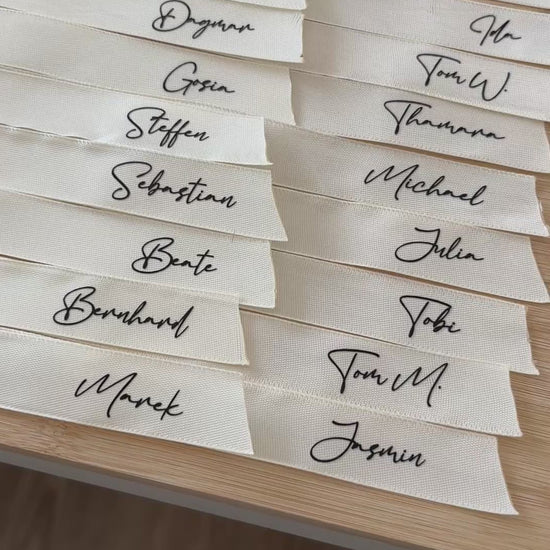 Dagmar
Gosia
Steffen
Sebastian
Beate
Bernhard
Marek
Ida
Tom W.
Thamara
Michael
Julia
Tobi
Tom M.
Jasmin